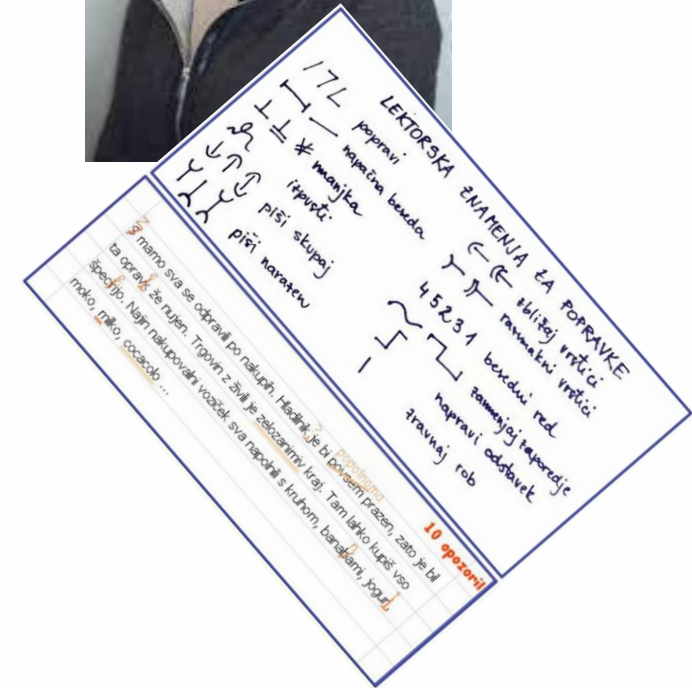 LEKTORSKA ZNAMENJA ZA POPRAVKE
popravi
napačna beseda
manjka
izpusti
piši skupaj
piši narazen
zbližaj vrstici
razmakni vrstici
45231 besedni red
zamenjaj zaporedje
napravi odstavek
zravnaj rob
10 opozoril
popolnoma
mamo sva se odpravili po nakupih. Hladilnik je bi povsem prazen, zato je bil
ta opravk že nujen. Trgovin z živili je zelozanimiv kraj. Tam lahko kupiš vso
Najin nakupovalni voziček sva napolnili s kruhom, banabami,
moko, cocacolo ...